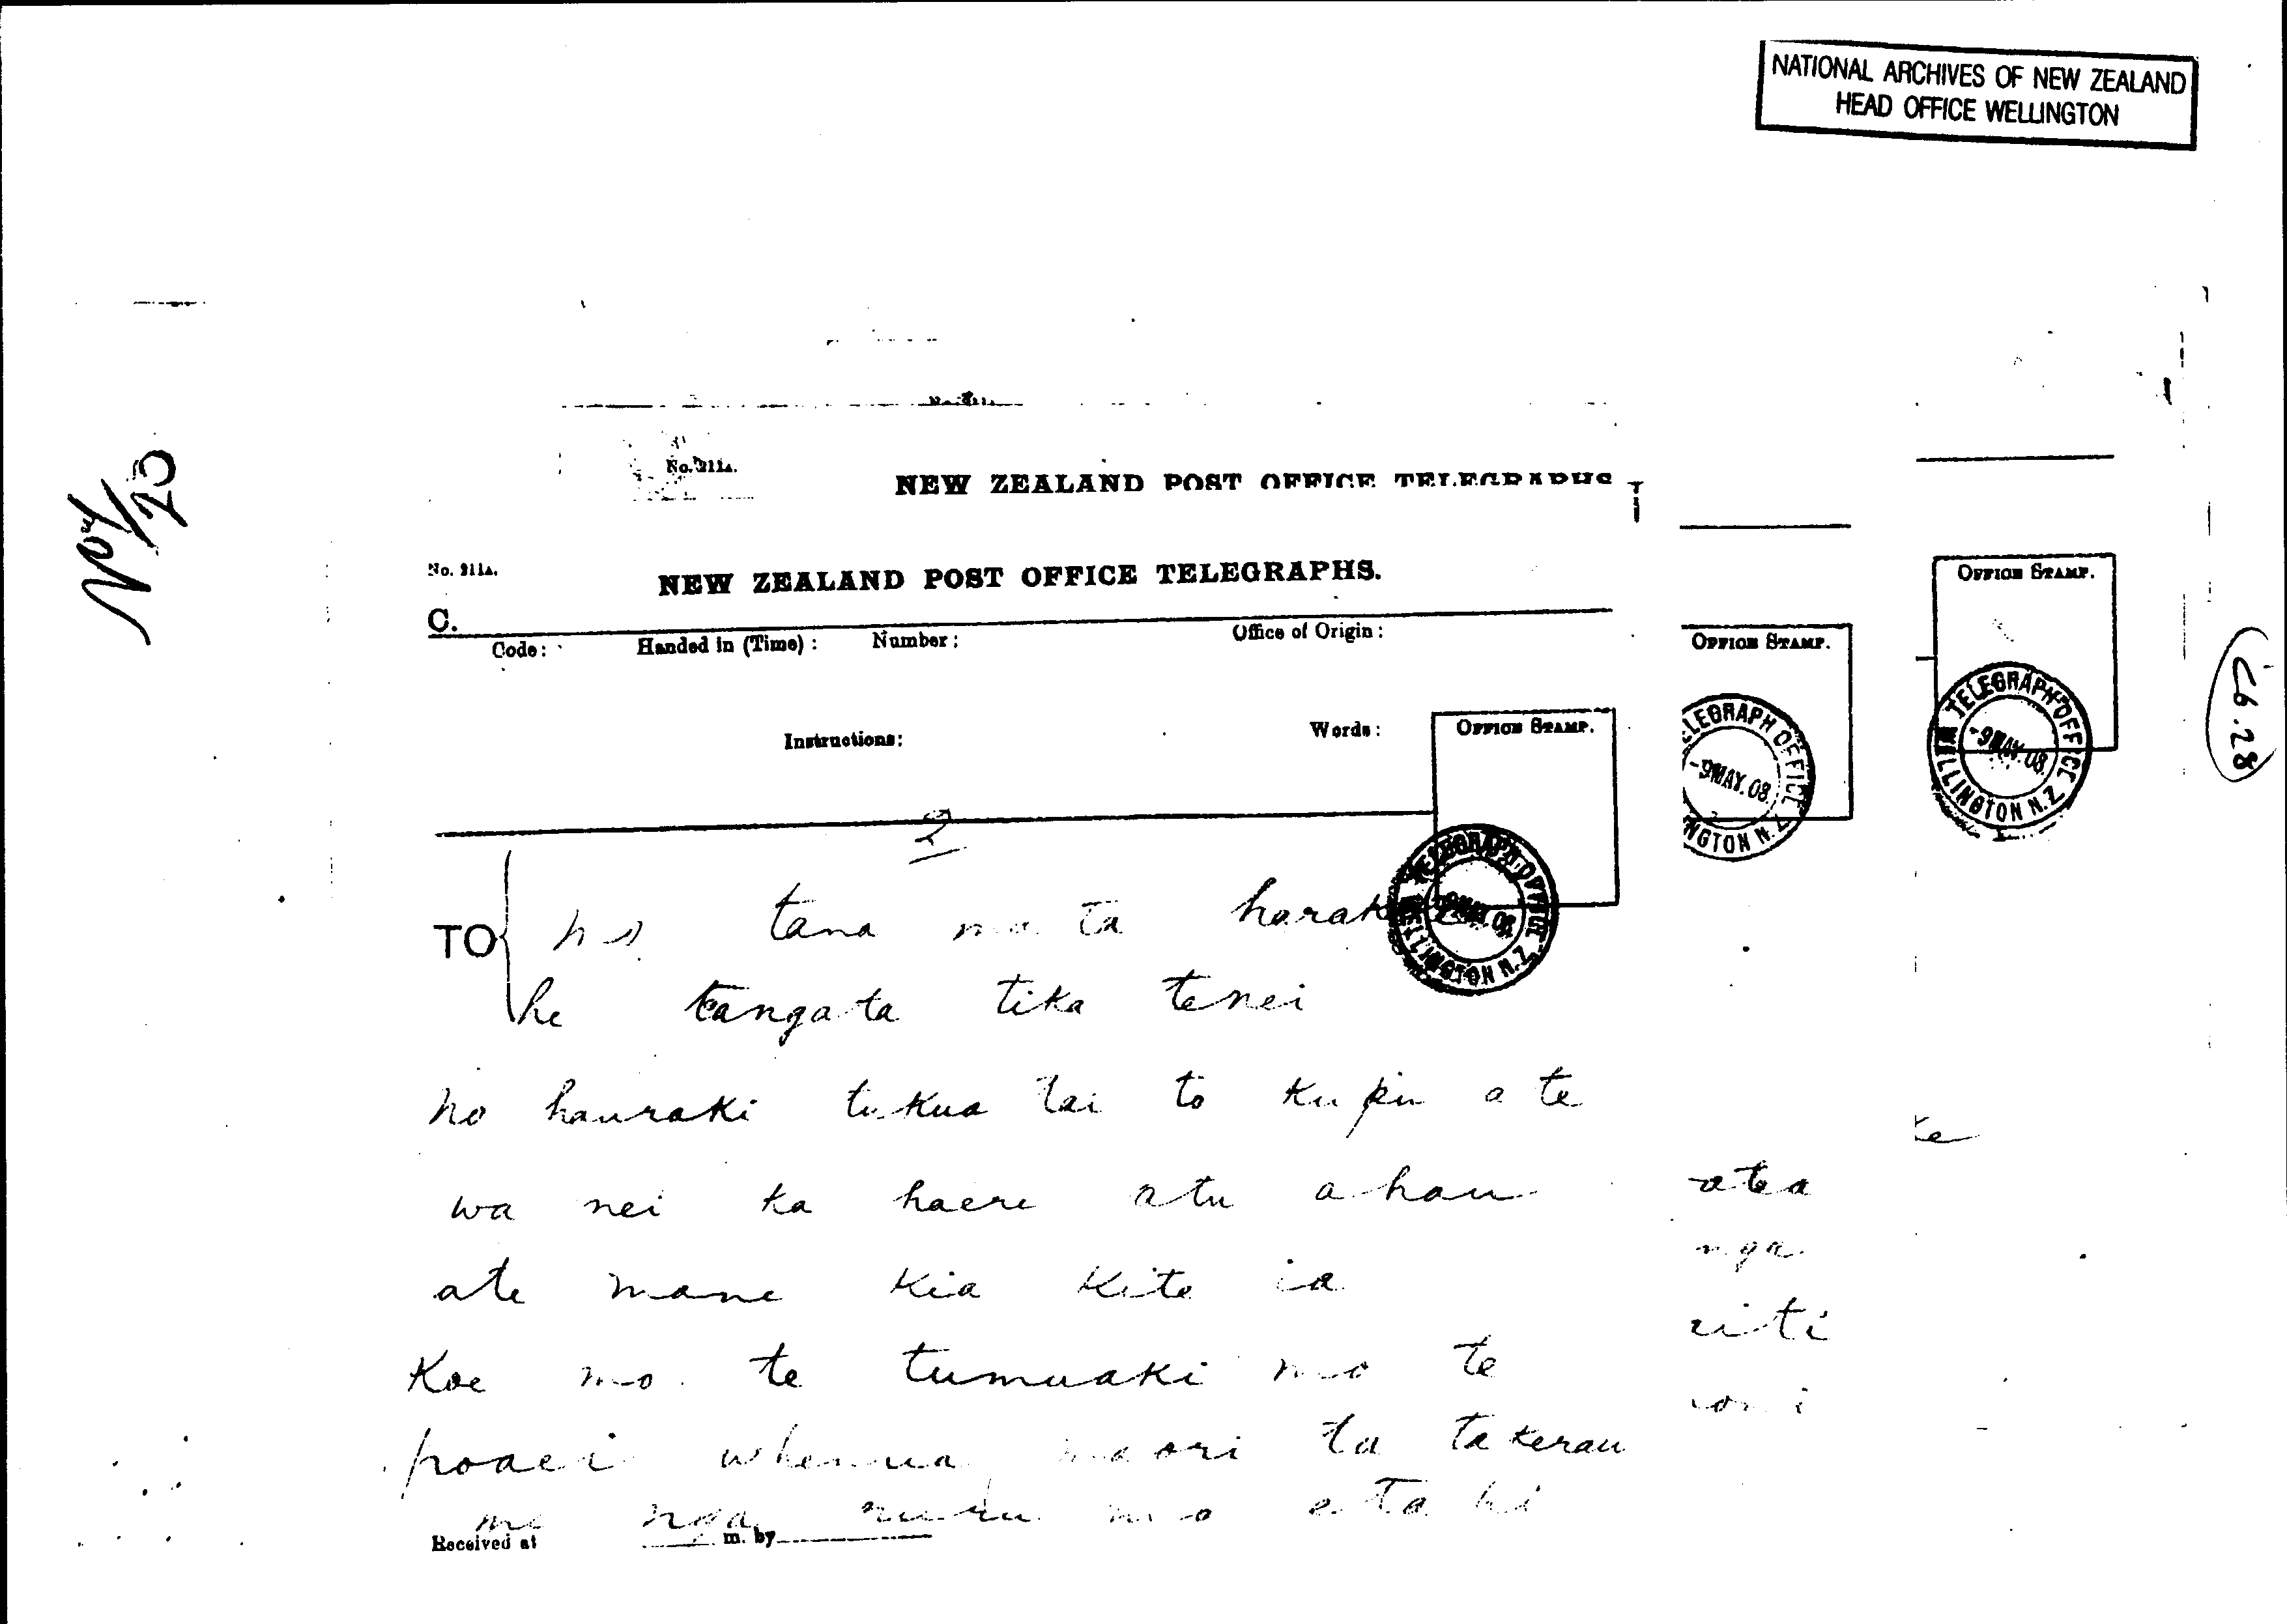 NATIONAL ARCHIVES OF NEW ZEALAND
HEAD OFFICE WELLINGTON
No. 211A.
NEW ZEALAND POST OFFICE TELEGRAPHS
No. 211A.
NEW ZEALAND POST OFFICE TELEGRAPHS.
C.
Code: Handed in (Time): Number: Office of Origin:
Instructions: Words:
OFFICE STAMP.
OFFICE STAMP.
OFFICE STAMP.
TELEGRAPH OFFICE
-9MAY.08
WELLINGTON N.Z.
LEGRAPH OFFICE
-9MAY.08
NGTON N.Z
2
TO
tana ta
he tangata tika tenei
no hauraki tukua tai to kupu a te
wa nei ka haere atu ahau
ate mane kia kite ia
Koe mo te tumuaki mo te
whenua maori ta takerau
me nga ruru mo etahi
te
atea
nga
riti
Received at m. by
26.28